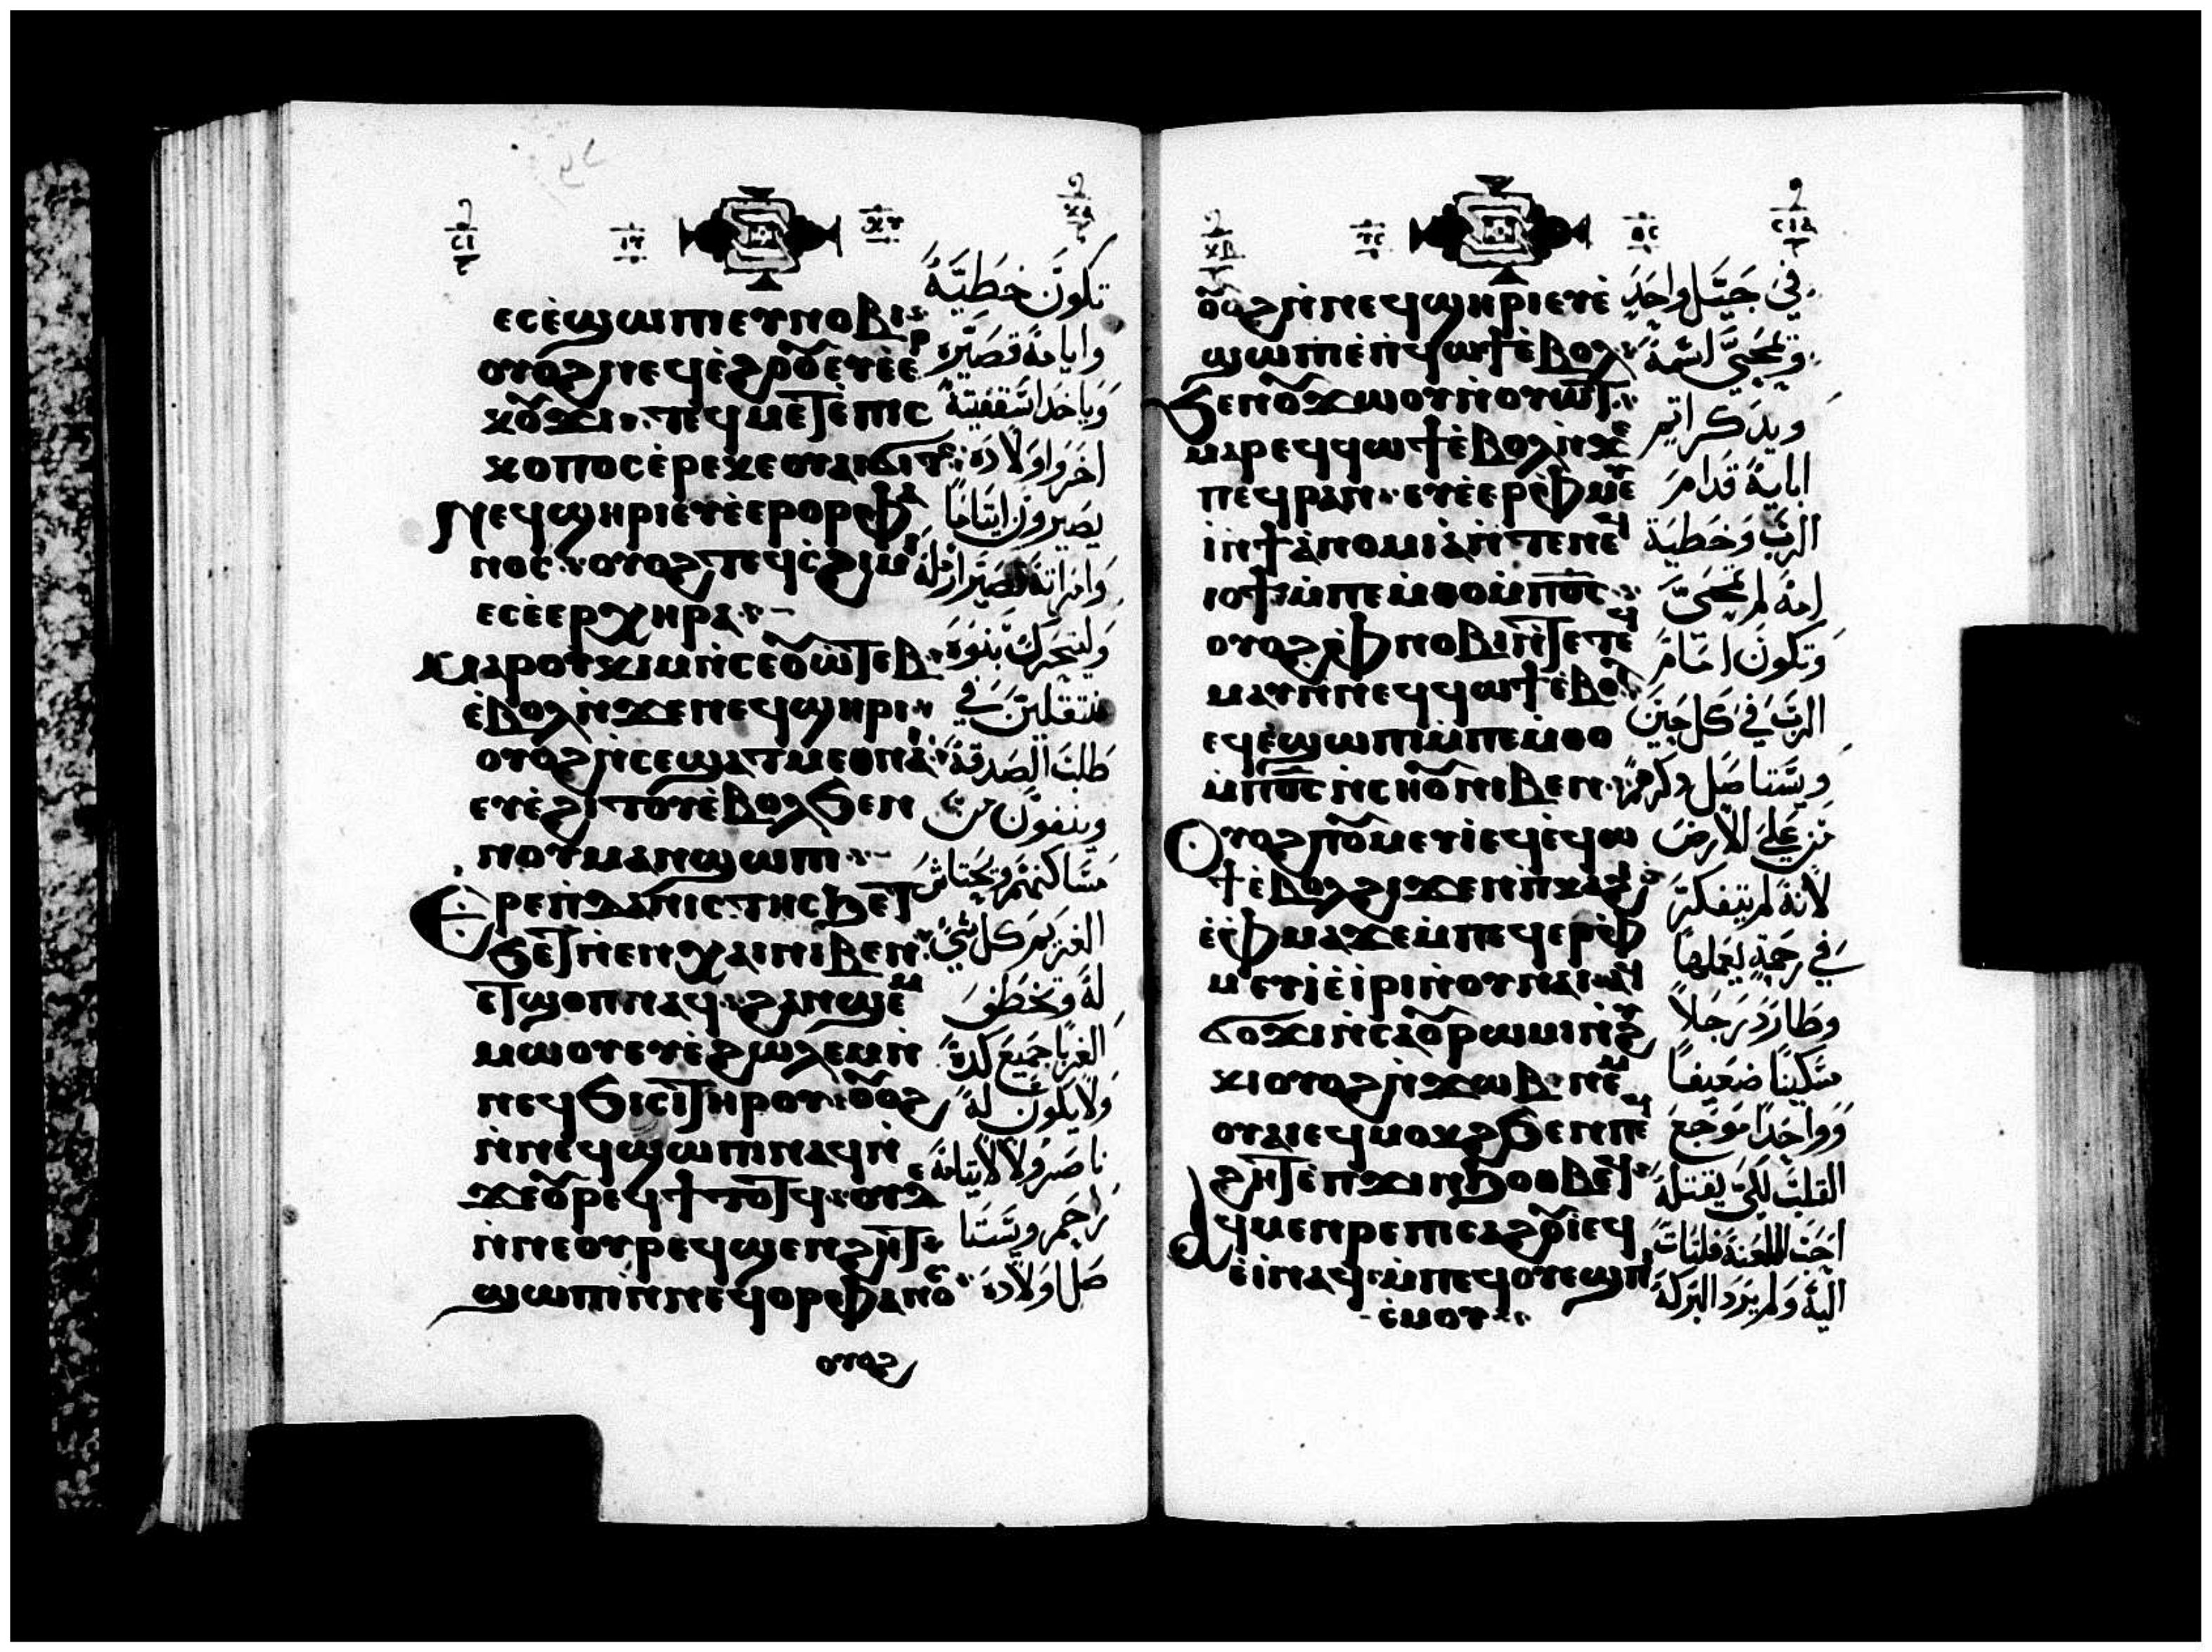 ⲉⲥⲉ̀ϣⲱⲡⲓ ⲉⲩⲛⲟⲃⲓ
ⲟⲩⲟϩ ⲛⲉϥⲉ̀ϩⲟⲟⲩ ⲉⲩⲉ̀ⲉⲣ
ⲕⲟⲩϫⲓ ⲧⲉϥⲙⲉⲧⲉ̀ⲡⲓⲥ
ⲕⲟⲡⲟⲥ ⲉ̀ⲣⲉ ⲕⲉⲟⲩⲁⲓ ϭⲓⲧⲥ
ⲛⲉϥϣⲏⲣⲓ ⲉⲩⲉ̀ⲉⲣⲟⲣⲫⲁ
ⲛⲟⲥ ⲟⲩⲟϩ ⲧⲉϥⲥ̀ϩⲓⲙⲓ
ⲉⲥⲉ̀ⲉⲣⲭⲏⲣⲁ
ⲙⲁⲣⲟⲩⲕⲓⲙ ⲛ̀ⲥⲉⲟⲩⲱⲧⲉⲃ
ⲉ̀ⲃⲟⲗ ⲛ̀ϫⲉ ⲛⲉϥϣⲏⲣⲓ
ⲟⲩⲟϩ ⲛ̀ⲥⲉϣⲁⲧⲙⲉⲑⲛⲁⲓ
ⲉⲩⲉ̀ϩⲓⲧⲟⲩ ⲉ̀ⲃⲟⲗ ϧⲉⲛ
ⲛⲟⲩⲙⲁⲛϣⲱⲡⲓ
Ⲉⲣⲉ ⲡ̀ⲇⲁⲛⲓⲥⲧⲏⲥ ϧⲉⲧ
ϧⲉⲧ ⲛ̀ⲉⲛⲭⲁⲓ ⲛⲓⲃⲉⲛ
ⲉⲧϣⲟⲡ ⲛⲁϥ ϩⲁⲛϣⲉⲙ
ⲙⲱⲟⲩ ⲉⲩⲉ̀ϩⲱⲗⲉⲙ ⲛ̀
ⲛⲉϥϧⲓⲥⲓ ⲧⲏⲣⲟⲩ ⲟⲩⲟϩ
ⲛ̀ⲛⲉϥϣⲱⲡⲓ ⲛⲁϥ ⲛ̀
ϫⲉ ⲟⲩⲣⲉϥϯⲧⲟⲧϥ ⲟⲩⲇⲉ
ⲛ̀ⲛⲉ ⲟⲩⲣⲉϥϣⲉⲛϩⲏⲧ
ϣⲱⲡⲓ ⲛ̀ⲛⲉϥⲟⲣⲫⲁⲛⲟⲥ
ⲟⲩⲟϩ
تكون خطية
وايامه قصيره
وياخد اسقفيته
اخر واولاده
يصيرون ايتاما
وامراته تصير ارمله
وليتحرك بنوه
منتقلين في
طلب الصدقة
وينفون من
مساكنهم ويحتاش
الغريم كل شي
له وتخطف
الغربا جميع كده
ولا يكون له
ناصر ولا لايتامه
راحم ويستا
صل اولاده
ⲟⲩⲟϩ ⲛ̀ⲛⲉϥϣⲏⲣⲓ ⲉⲩⲉ̀
ϣⲱⲡⲓ ⲉ̀ⲡϥⲱϯ ⲉ̀ⲃⲟⲗ
ϧⲉⲛ ⲟⲩϫⲱⲟⲩ ⲛ̀ⲟⲩⲱⲧ
ⲙⲁⲣⲉϥϥⲱϯ ⲉ̀ⲃⲟⲗ ⲛ̀ϫⲉ
ⲡⲉϥⲣⲁⲛ ⲉⲩⲉ̀ⲉⲣⲫ̀ⲙⲉⲩ
ⲓ ⲛ̀ϯⲁⲛⲟⲙⲓⲁ ⲛ̀ⲧⲉ ⲛⲉϥ
ⲓⲟϯ ⲙ̀ⲡⲉⲙ̀ⲑⲟ ⲙ̀ⲡ⳪
ⲟⲩⲟϩ ⲫ̀ⲛⲟⲃⲓ ⲛ̀ⲧⲉ ⲧⲉϥ
ⲙⲁⲩ ⲛ̀ⲛⲉϥϥⲱϯ ⲉ̀ⲃⲟⲗ
ⲉϥⲉ̀ϣⲱⲡⲓ ⲙ̀ⲡⲉⲙ̀ⲑⲟ
ⲙ̀ⲡ⳪ ⲛ̀ⲥⲏⲟⲩ ⲛⲓⲃⲉⲛ
Ⲟⲩⲟϩ ⲡⲟⲩⲙⲉⲩⲓ ⲉϥⲉ̀ϥⲱ
ϯ ⲉ̀ⲃⲟⲗ ϩⲓϫⲉⲛ ⲡ̀ⲕⲁϩⲓ
ⲉ̀ⲫ̀ⲙⲁ ϫⲉ ⲙ̀ⲡⲉϥⲉⲣⲫ̀
ⲙⲉⲩⲓ ⲉ̀ⲓⲣⲓ ⲛ̀ⲟⲩⲛⲁⲓ ⲁϥ
ϭⲟϫⲓ ⲛ̀ⲥⲁ ⲟⲩⲣⲱⲙⲓ ⲛ̀ϩⲏ
ⲕⲓ ⲟⲩⲟϩ ⲛ̀ϫⲱⲃ ⲛⲉⲙ
ⲟⲩⲁⲓ ⲉϥⲙⲟⲕϩ ϧⲉⲛ ⲡⲉϥ
ϩⲏⲧ ⲉ̀ⲡ̀ϫⲓⲛϧⲟⲑⲃⲉϥ
Ⲁϥⲙⲉⲛⲣⲉ ⲡⲓⲥⲁϩⲟⲩⲓ ⲉϥ
ⲉ̀ⲓ̀ ⲛⲁϥ ⲙ̀ⲡⲉϥⲟⲩⲉϣ ⲡⲓ
ⲥ̀ⲙⲟⲩ
في جيل واحد
وتمحى اسمه
ويذكر اتم
ابايه قدام
الرب وخطية
امه لم تمحى
وتكون امام
الرب في كل حين
ويستاصل ذكرهم
من على الارض
لانه لم يتفكر
في رحمة يعملها
وطارد رجلا
مسكينا ضعيفا
وواحدا موجع
القلب لكي يقتله
احب اللعنة فلتات
اليه ولم يرد البركة